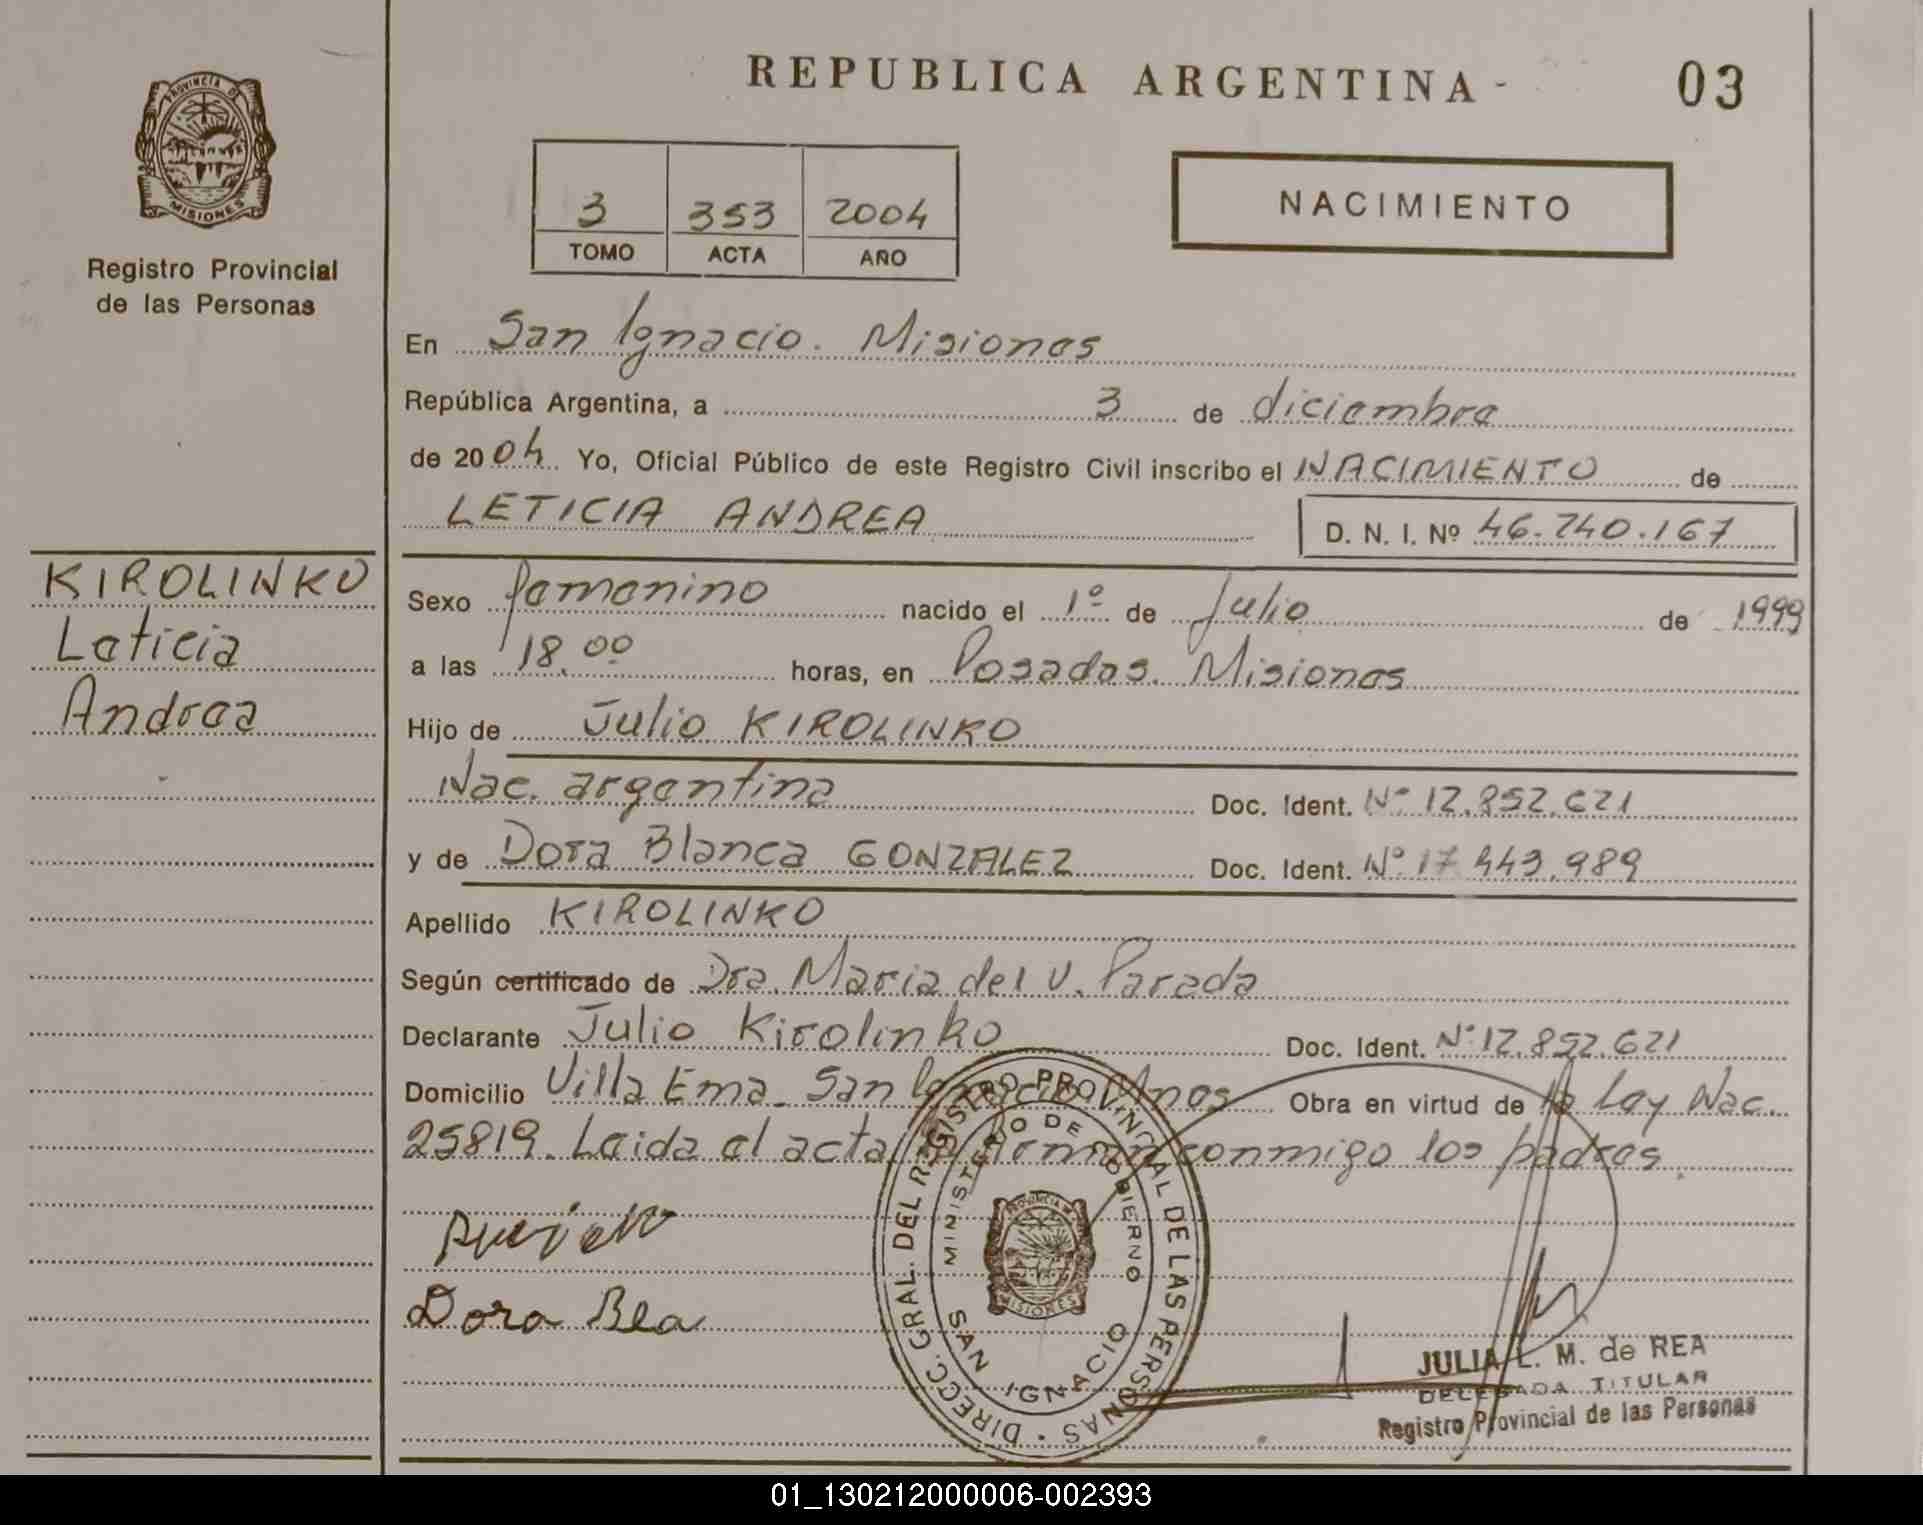 PROVINCIA DE
MISIONES
Registro Provincial
de las Personas
KIROLINKO
Leticia
Andrea
REPUBLICA ARGENTINA
03
3 353 2004
TOMO ACTA AÑO
NACIMIENTO
En San Ignacio. Misiones
República Argentina, a 3 de diciembre
de 2004 Yo, Oficial Público de este Registro Civil inscribo el NACIMIENTO de
LETICIA ANDREA D. N. I. Nº 46.740.167
Sexo femenino nacido el 1º de Julio de 1999
a las 18.00 horas, en Posadas. Misiones
Hijo de Julio KIROLINKO
Nac. argentina Doc. Ident. Nº 12.852.621
y de Dora Blanca GONZALEZ Doc. Ident. Nº 17 443.989
Apellido KIROLINKO
Según certificado de Dra. Maria del V. Parada
Declarante Julio Kirolinko Doc. Ident. Nº 12.852.621
Domicilio Villa Ema. San Ignacio Mnes Obra en virtud de la Ley Nac.
25819. Leida el acta la firman conmigo los padres.
Dora Bla
DIRECC. GRAL. DEL REGISTRO PROVINCIAL DE LAS PERSONAS
MINISTERIO DE GOBIERNO
PROVINCIA DE
MISIONES
SAN IGNACIO
JULIA L. M. de REA
DELEGADA TITULAR
Registro Provincial de las Personas
01_130212000006-002393